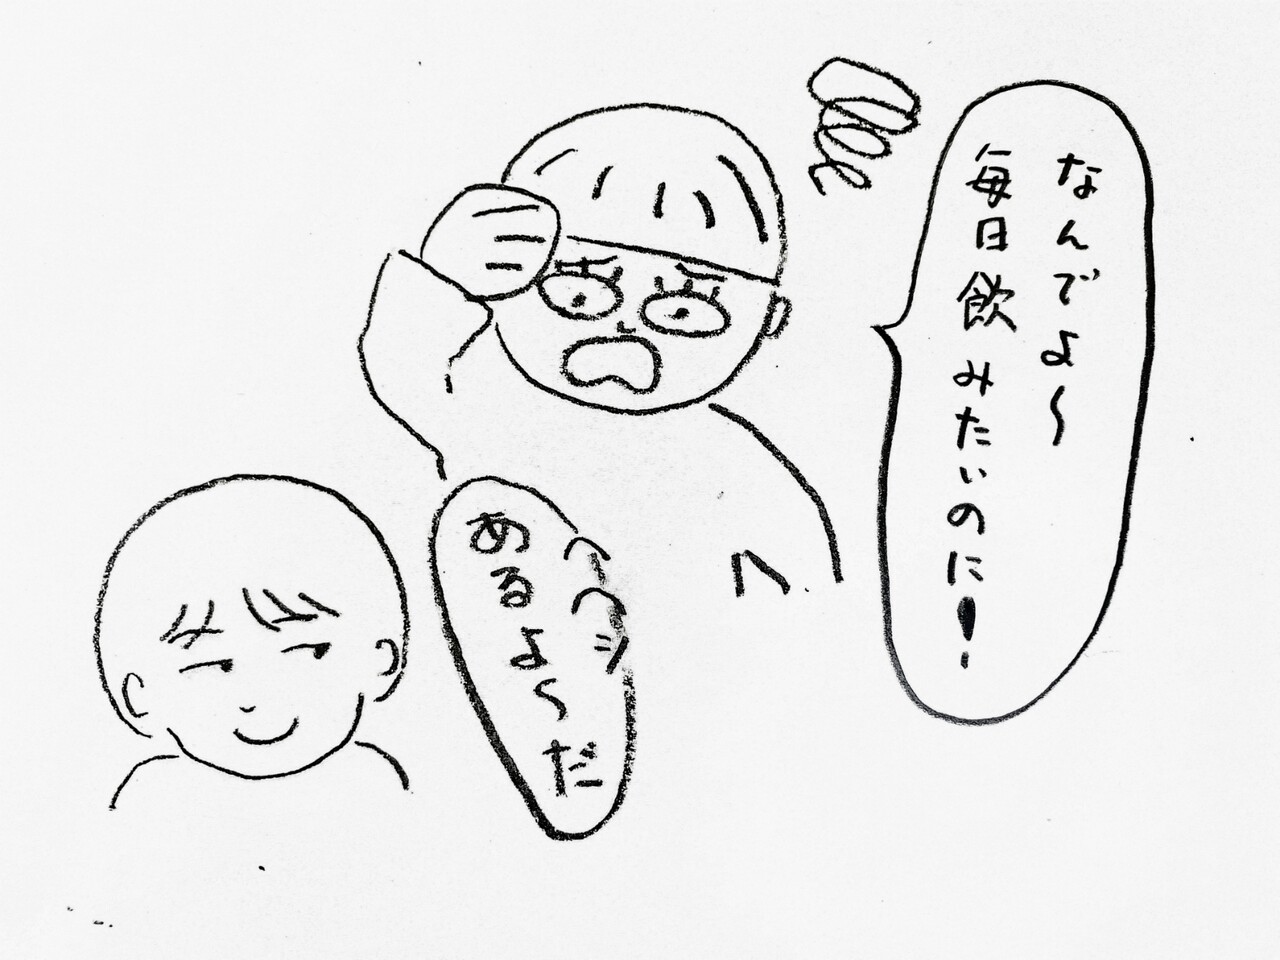 なんでよ〜
毎日飲みたいのに!
へへーン
あるよ〜だ